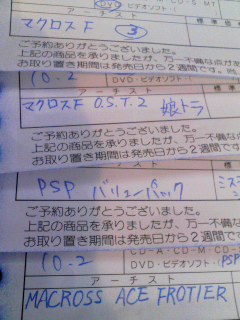 DVD
アーチスト
マクロスF ③
ご予約ありがとうございました。
上記の商品を承りましたが、万一不備な点があ
お取り置き期間は発売日から2週間です。
10.2
DVD・ビデオソフト
アーチスト
マクロスF O.S.T.2 娘トラ
ご予約ありがとうございました。
上記の商品を承りましたが、万一不備な
お取り置き期間は発売日から2週間
PSP バリューパック ミス
ご予約ありがとうございました。
上記の商品を承りましたが、万一不
お取り置き期間は発売日から2週
10.2
CD-A・CD-M・CD-
DVD・ビデオソフト・PSP
アーチスト
MACROSS ACE FROTIER